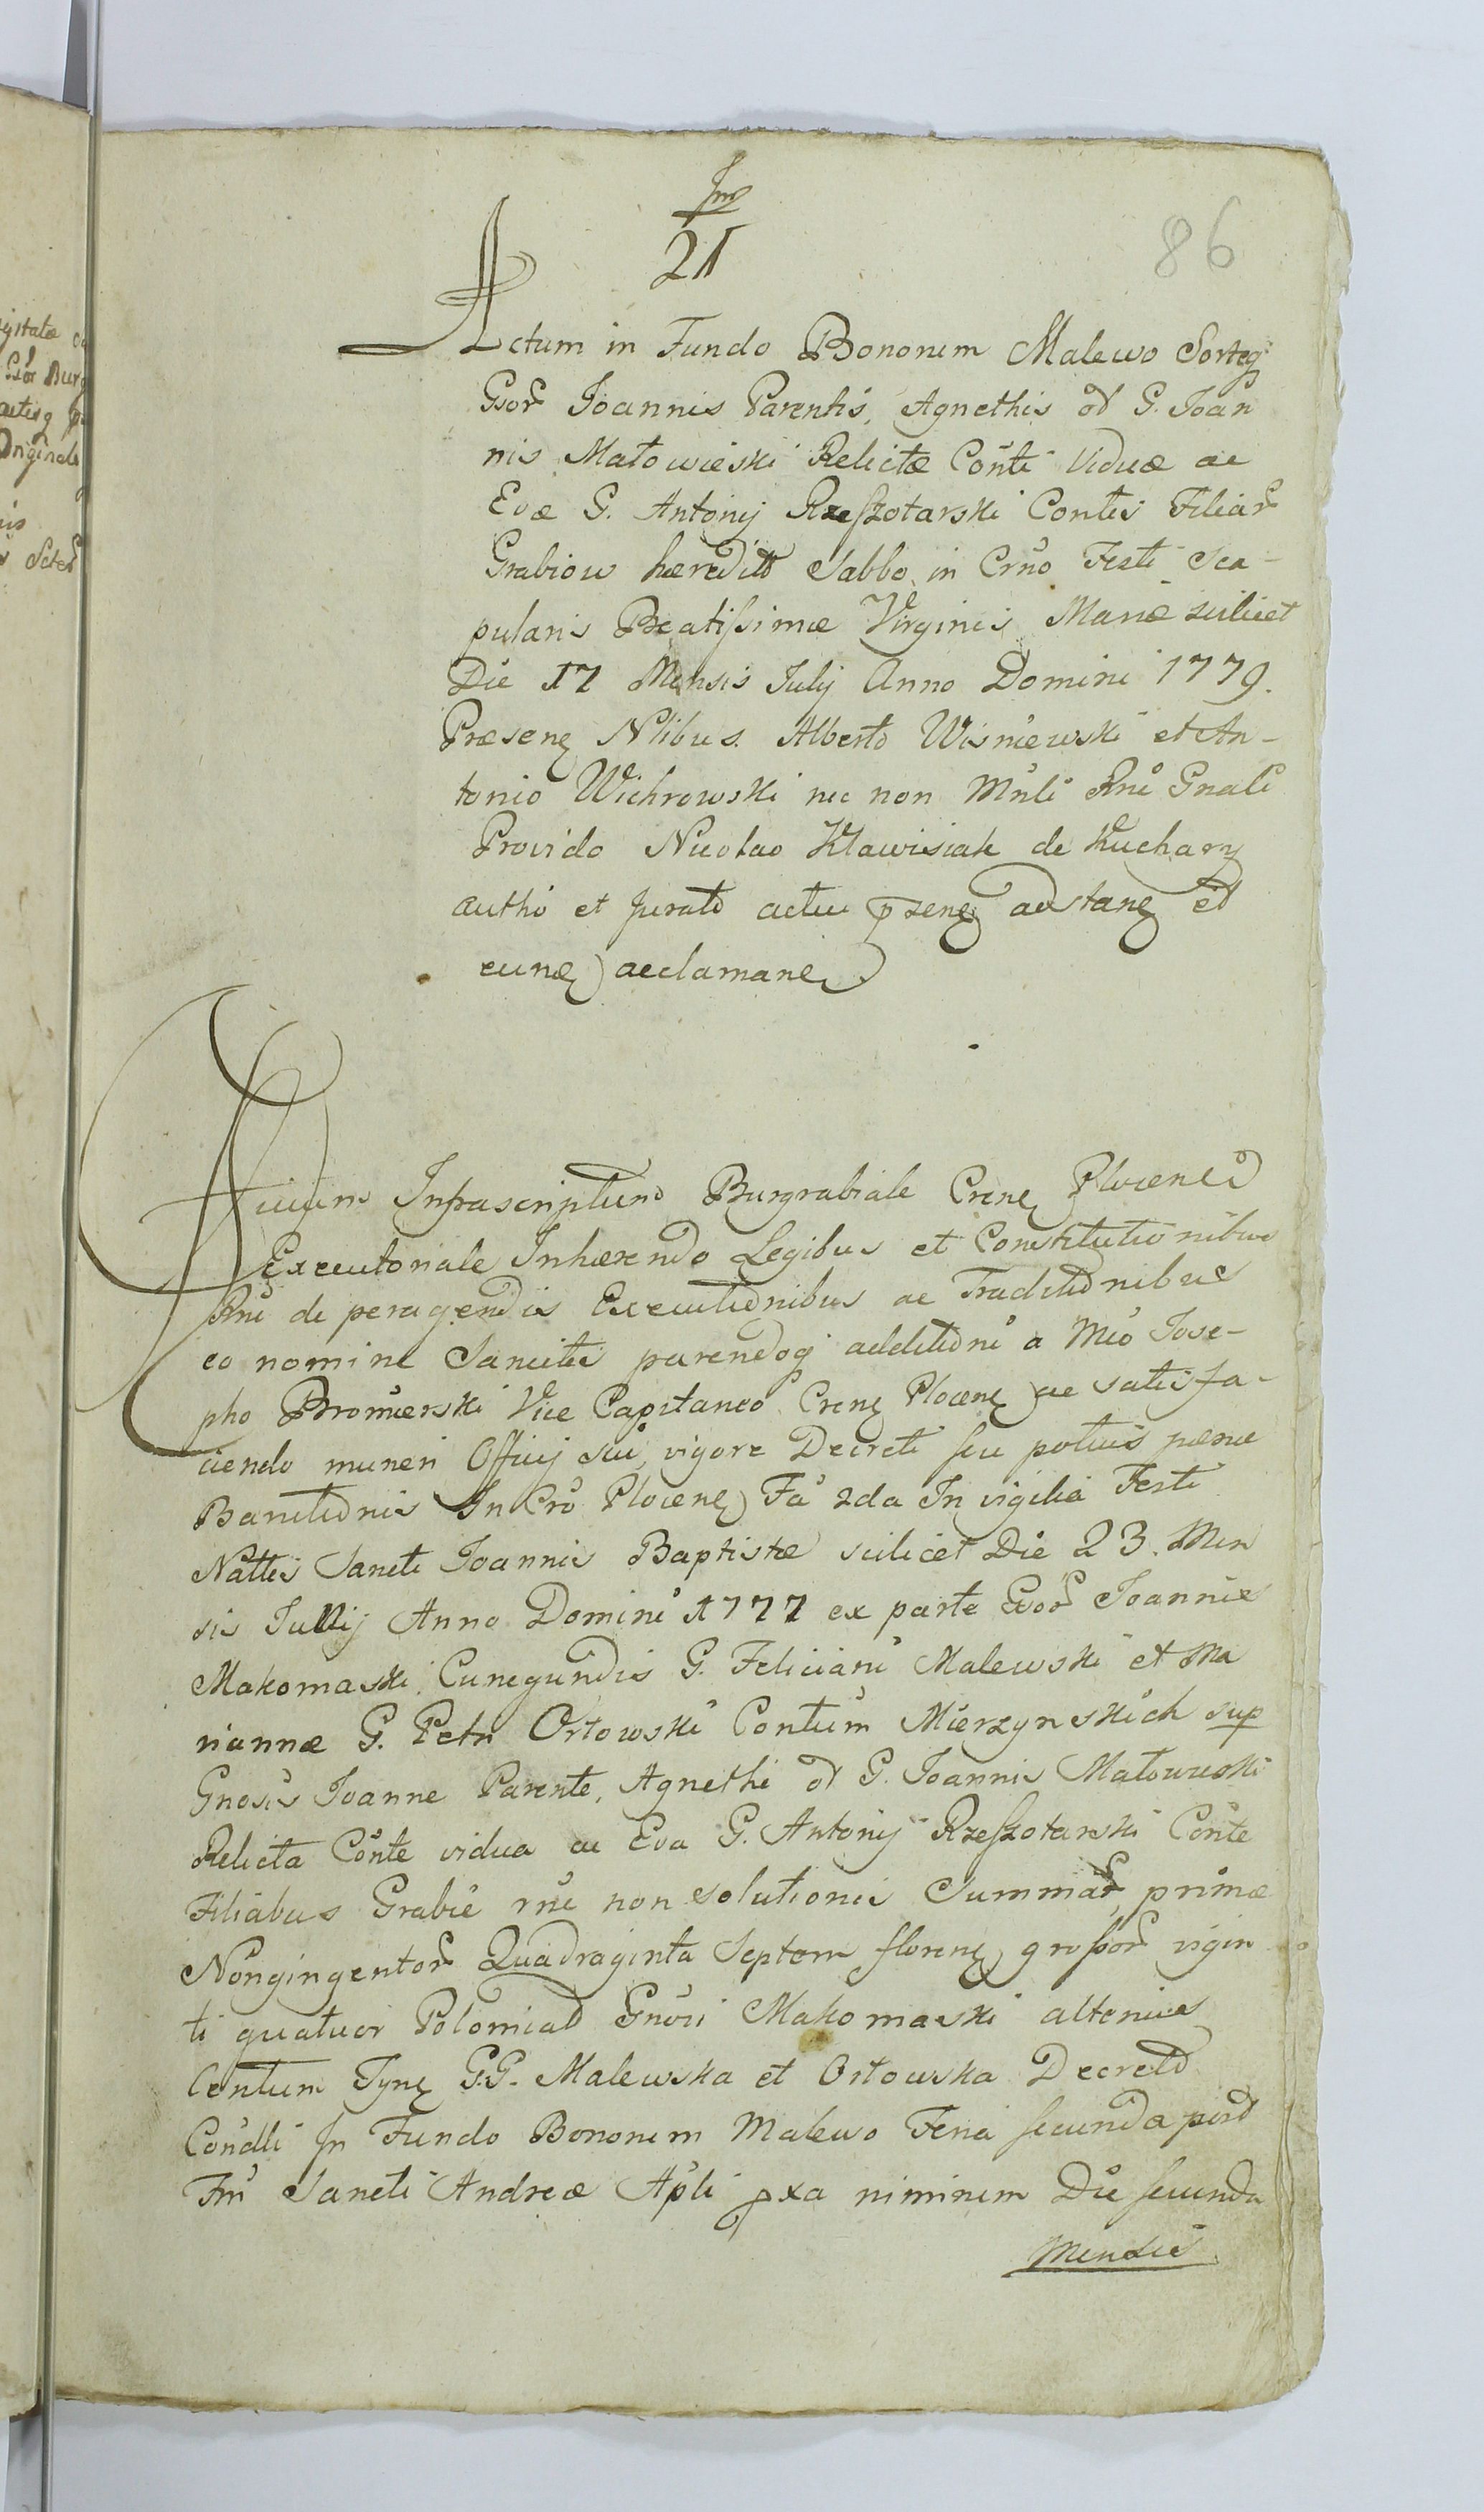 21
86
Actum in Fundo Bonorum Malewo Sorteq
Gsor Joannis Parentis, Agnethis od G. Joan
nis Małowieski Relictæ Conti Viduæ ac
Evæ G. Antonij Rzeszotarski Contis Filiar
Grabiow hæredit Sabbo in Crno Festi Sca-
pularis Beatissimæ Virginis Mariæ scilicet
Die 17 Mensis Julij Anno Domini 1779.
Præsenq Nlibus. Alberto Wisniewski et An-
tonio Wichrowski nec non Mnli Rni Gnali
Provido Nicolao Kławisiak de Kuchary
autho et jurato actu pzenq adstanq et
eunq acclamanq
Officium Infrascriptum Burgrabiale Crenq Plocenq
Executoriale Inhærendo Legibus et Constitutionibus
Rni de peragendis Executionibus ac Traditionibus
eo nomine Sancitis parendoq additioni a Mco Jose-
pho Bromierski Vice Capitaneo Crenq Plocenq ac satisfa-
ciendo muneri Officij sui, vigore Decreti seu potius pænæ
Banitionis In Cro Plocenq Fa 2da In vigilia Festi
Nattis Sancti Joannis Baptistæ scilicet Die 23. Men
sis Junij Anno Domini 1777 ex parte Gsor Joannis
Makomaski, Cunegundis G. Feliciani Malewski et Ma
riannæ G. Petri Orłowski Contum Mierzynskich sup
Gnosis Joanne Parente, Agnethe od G. Joannis Małowieski
Relicta Conte vidua ac Eva G. Antonij Rzeszotarski Conte
Filiabus Grabie rne non solutionis Summar, primæ
Nongingentor Quadraginta Septem florenq grossor vigin
ti quatuor Poloniad Gnosi Makomaski alterius
Centum Tynq G.G. Malewska et Orłowska Decreto
Condli In Fundo Bonorum Malewo Feria secunda post
Fm Sancti Andreæ Apli pxa niminem Die secunda
Mensis